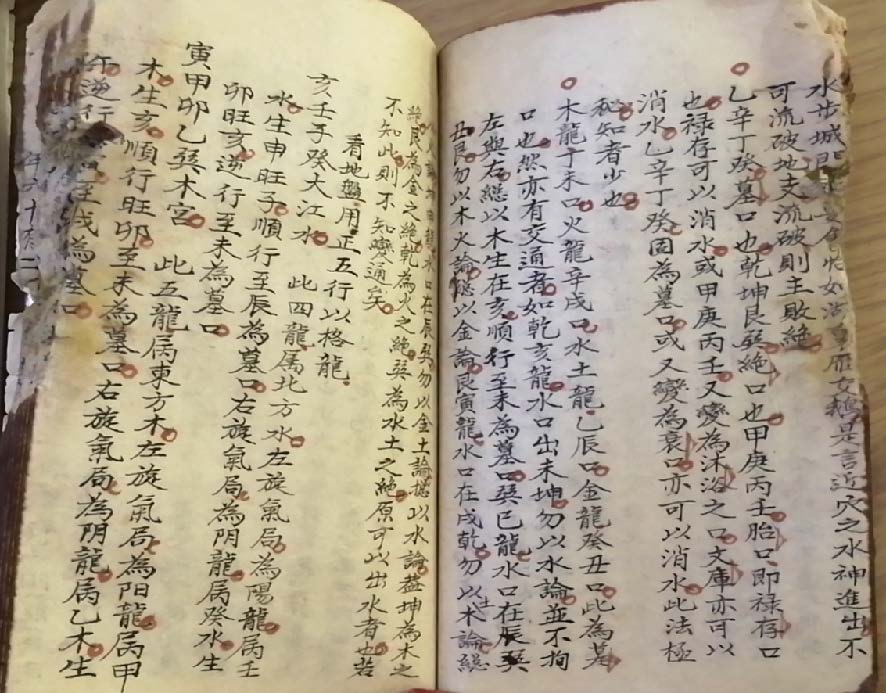 水步城門如皇雁交鵝是言近穴之水神進出不
可流破地支流破則主敗絶
乙辛丁癸墓口也乾坤艮巽絶口也甲庚丙壬胎口即禄存口
也禄存可以消水或甲庚丙壬又變為沐浴之口文庫亦可以
消水乙辛丁癸固為墓口或又變為衰口亦可以消水此法極
秘知者少也
木龍丁未口火龍辛戌口水土龍乙辰口金龍癸丑口此為墓
口也然亦有交通者如乾亥龍水口出未坤勿以水論並不拘
左與右総以木生在亥順行至未為墓口巽巳龍水口在辰巽
丑艮勿以木火論総以金論艮寅龍水口在戌乾勿以木論総
龍水口在辰巽勿以金土論総以水論盖坤為木之
絶艮為金之絶乾為火之絶巽為水土之絶原可以出水者也若
不知此則不知變通矣
看地盤用正五行以格龍
亥壬子癸大江水 此四龍属北方水左旋氣局為陽龍属壬
水生申旺子順行至辰為墓口右旋氣局為阴龍属癸水生
卯旺亥逆行至未為墓口
寅甲卯乙巽木宮 此五龍属東方木左旋氣局為阳龍属甲
木生亥順行旺卯至未為墓口右旋氣局為阴龍属乙木生
午逆行至戌為墓口